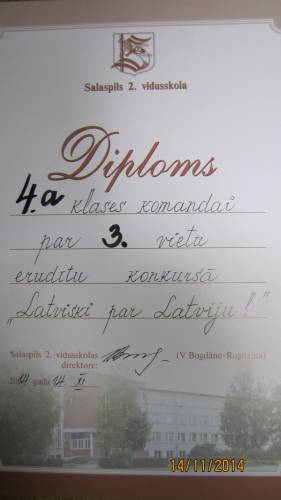 Salaspils 2. vidusskola
Diploms
4.a klases komandai
par 3. vietu
erudītu konkursā
„Latviski par Latviju!"
Salaspils 2. vidusskolas
direktore: (V.Bogdāne-Rogozina)
2014 gada 14. XI
14/11/2014